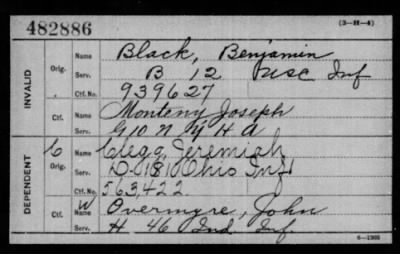 482886 (3-H-4)
INVALID
Orig. Name Black, Benjamin
Serv. B 12 Inf
Ctf. No. 939627
Ctf. Name Monteny Joseph
Serv. G 10 N Y H A
DEPENDENT
C Orig. Name Clegg, Jeremiah
Serv. D-181 Ohio Inf
Ctf. No. 563,422
W Ctf. Name Overmyre, John
Serv. H 46 Ind Inf